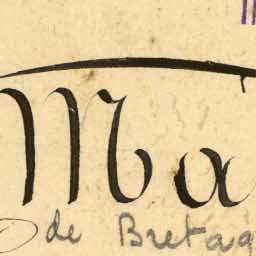 Ma
de Bretag